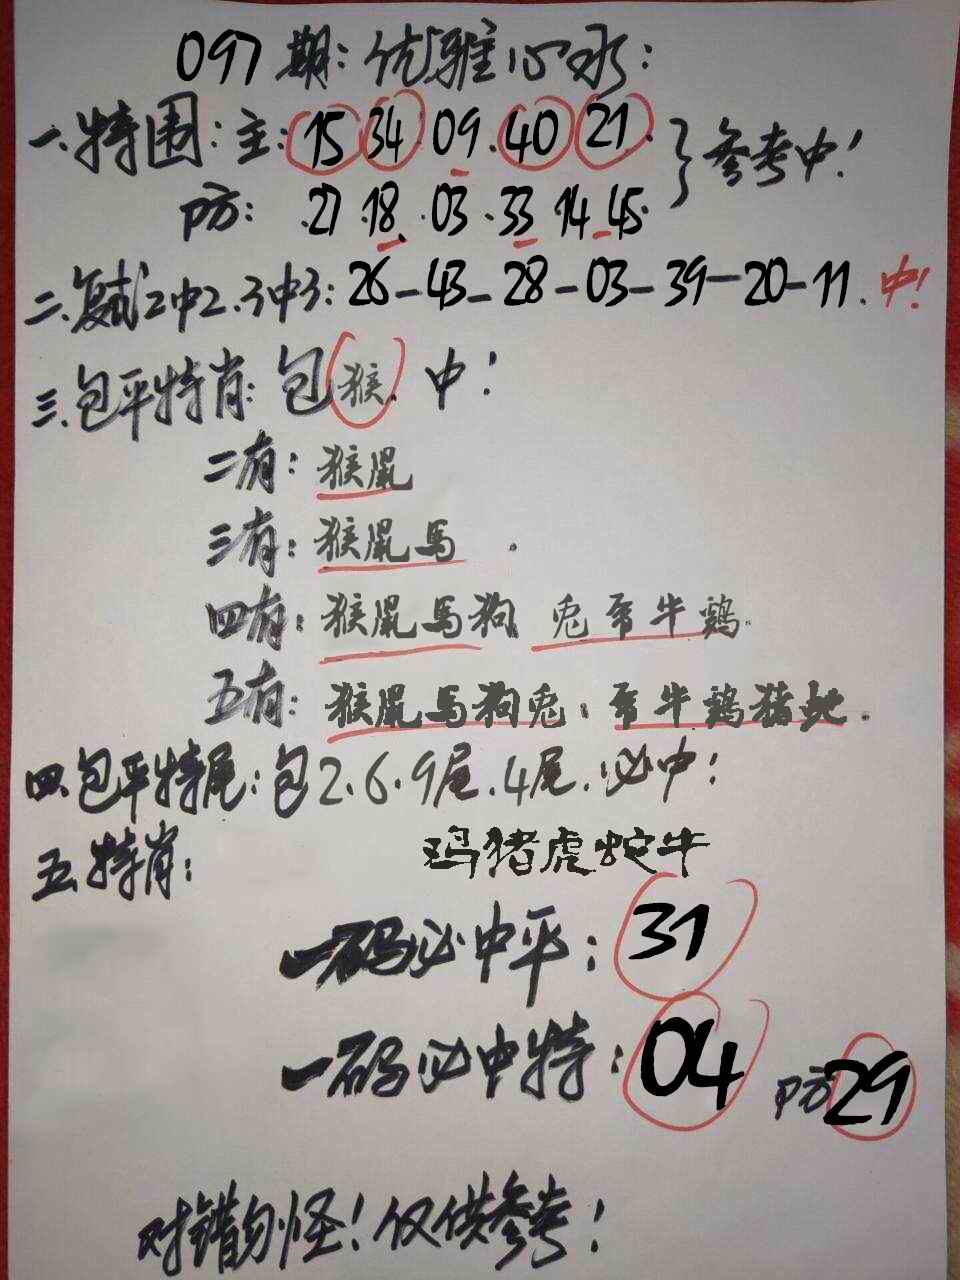 097期:优雅心水:
一.特围:主:15 34 09.40 21.
防:.27.18.03.33 14 45.
}参考中!
二.复式2中2.3中3:26-43-28-03-39-20-11.中!
三.包平特肖:包猴.中!
二有:猴鼠
三有:猴鼠馬.
四有:猴鼠馬狗 兔龙牛鷄
五有:猴鼠馬狗兔.龙牛鷄猪虵.
四.包平特尾:包2.6.9尾.4尾.必中!
五.特肖: 鸡猪虎蛇牛
一码必中平:31
一码必中特:04 防29
对错勿怪!仅供参考!